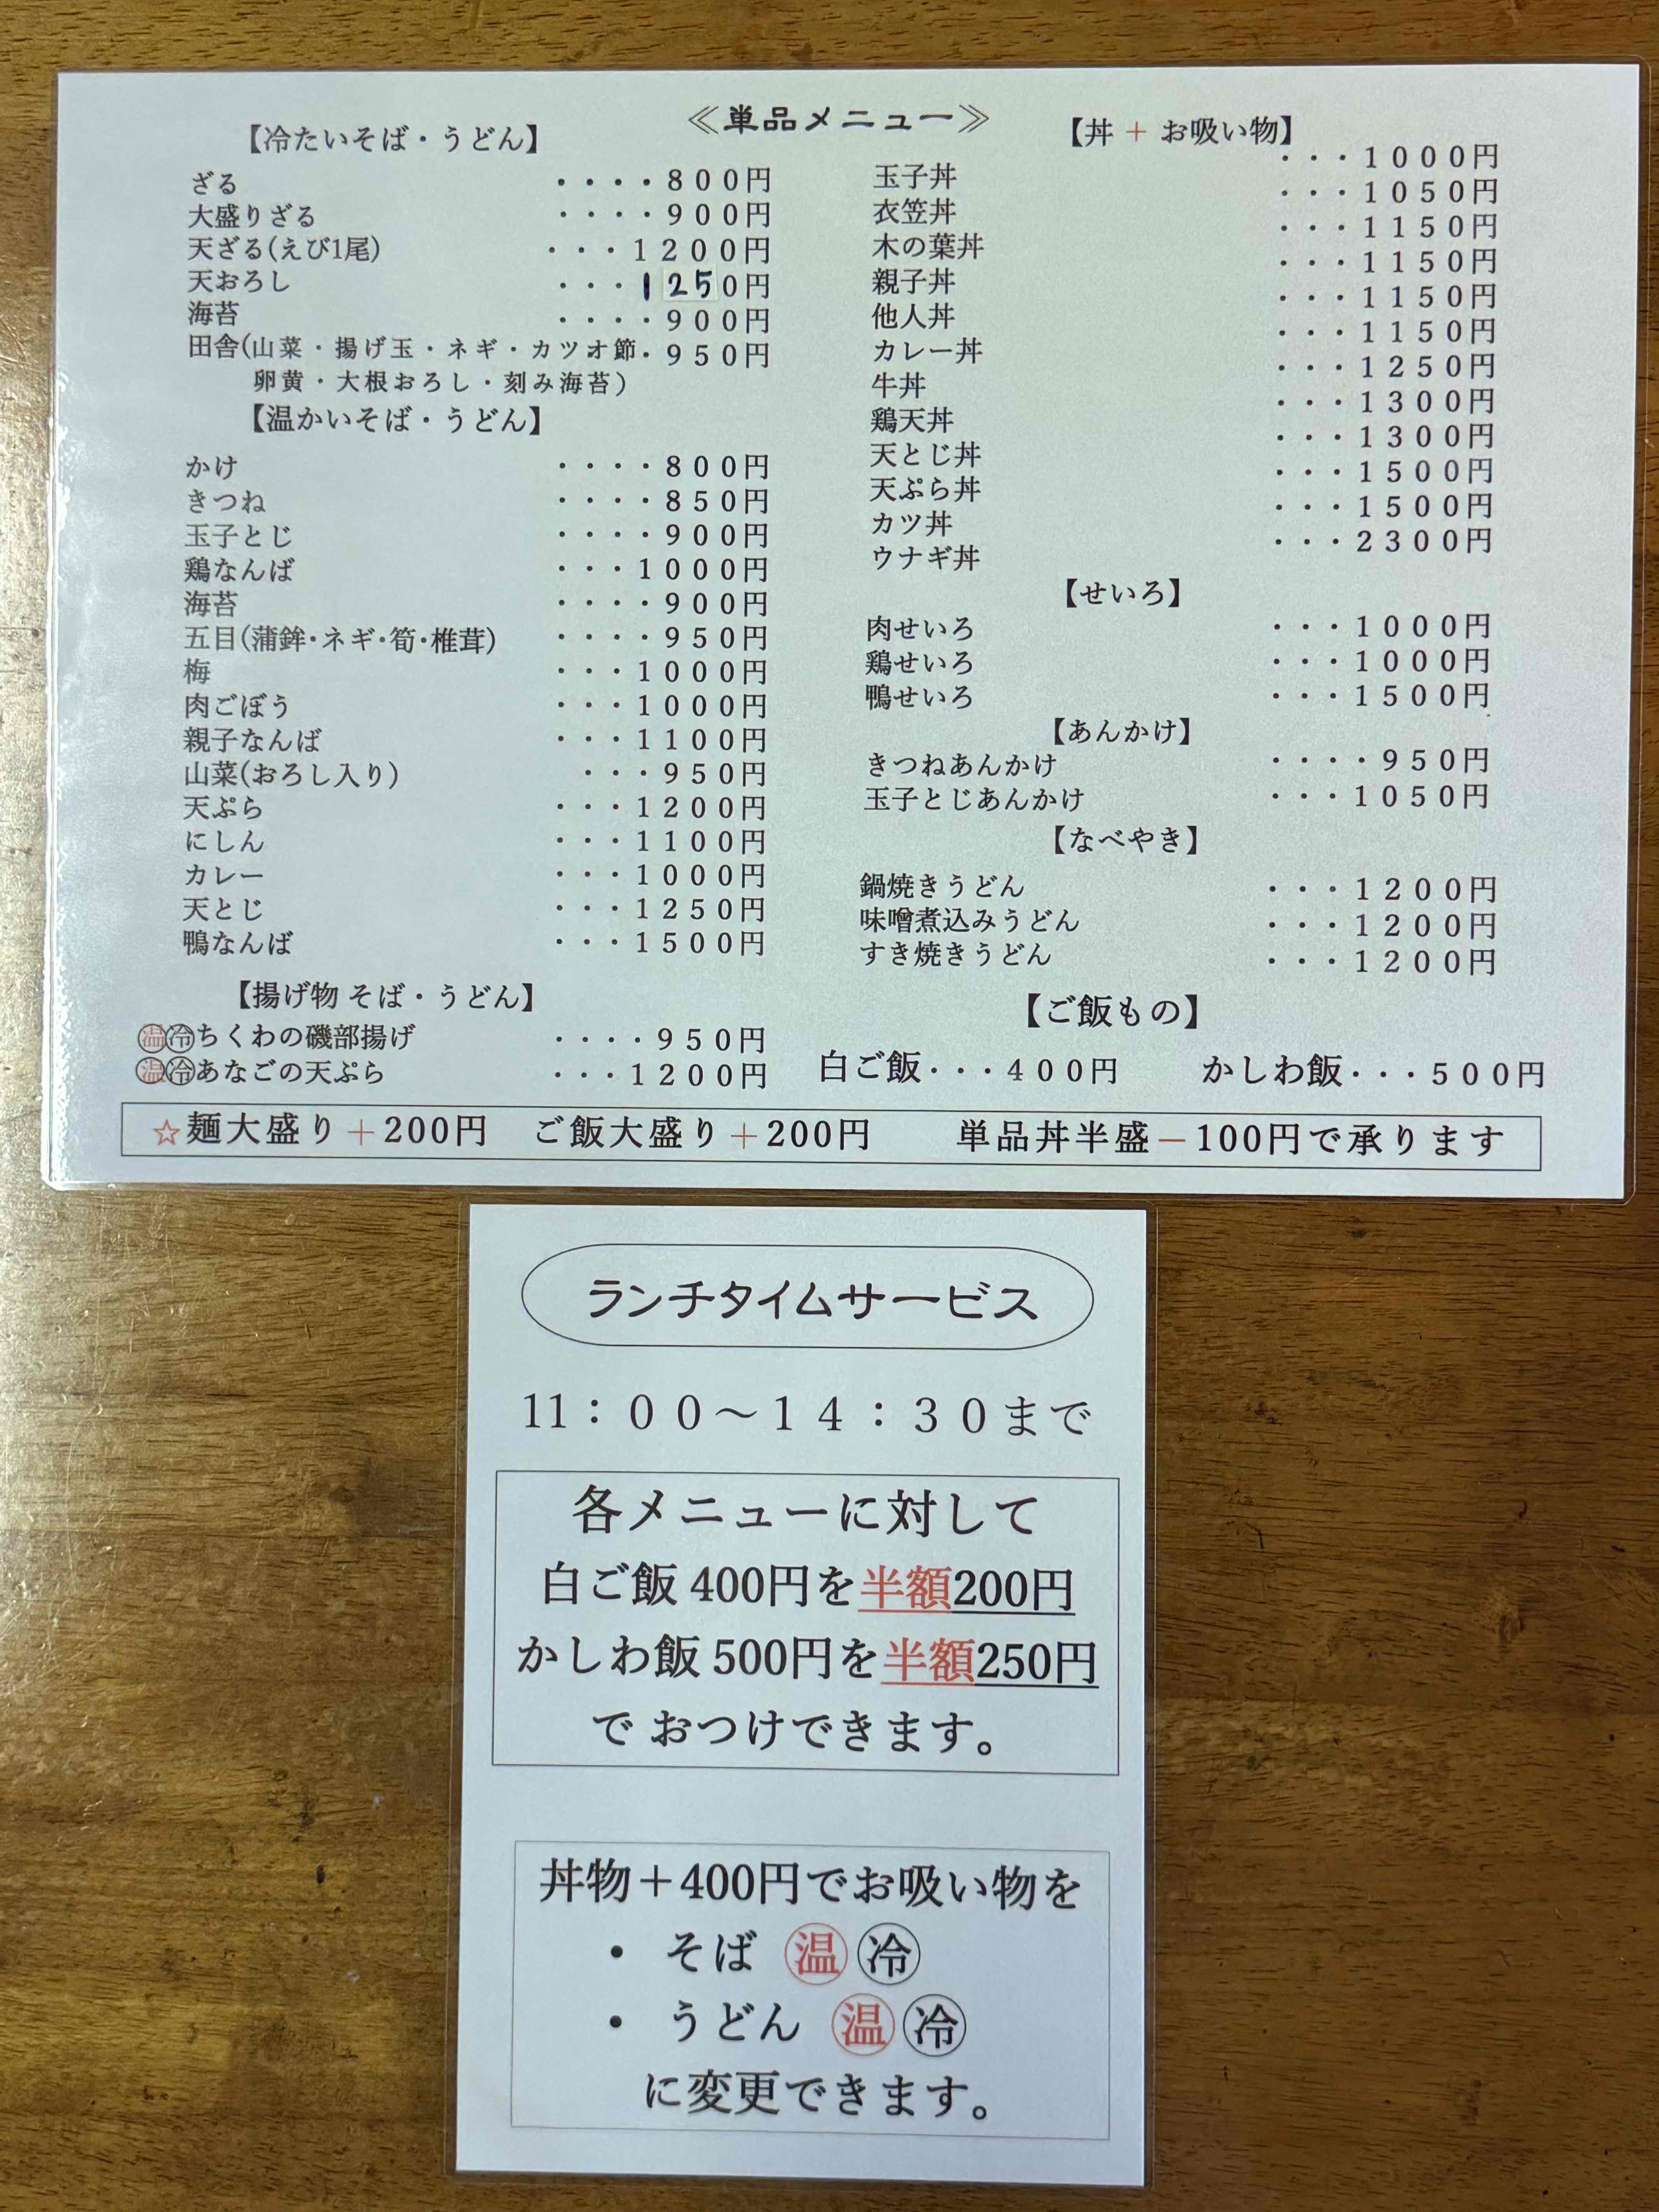 ≪単品メニュー≫
【冷たいそば・うどん】
ざる ････800円
大盛りざる ････900円
天ざる(えび1尾) ･･･1200円
天おろし ･･･1250円
海苔 ････900円
田舎(山菜・揚げ玉・ネギ・カツオ節･950円
卵黄・大根おろし・刻み海苔)
【温かいそば・うどん】
かけ ････800円
きつね ････850円
玉子とじ ････900円
鶏なんば ･･･1000円
海苔 ････900円
五目(蒲鉾･ネギ･筍･椎茸) ････950円
梅 ･･･1000円
肉ごぼう ･･･1000円
親子なんば ･･･1100円
山菜(おろし入り) ･･･950円
天ぷら ･･･1200円
にしん ･･･1100円
カレー ･･･1000円
天とじ ･･･1250円
鴨なんば ･･･1500円
【揚げ物 そば・うどん】
温冷ちくわの磯部揚げ ････950円
温冷あなごの天ぷら ･･･1200円
【丼 + お吸い物】
玉子丼 ･･･1000円
衣笠丼 ･･･1050円
木の葉丼 ･･･1150円
親子丼 ･･･1150円
他人丼 ･･･1150円
カレー丼 ･･･1150円
牛丼 ･･･1250円
鶏天丼 ･･･1300円
天とじ丼 ･･･1300円
天ぷら丼 ･･･1500円
カツ丼 ･･･1500円
ウナギ丼 ･･･2300円
【せいろ】
肉せいろ ･･･1000円
鶏せいろ ･･･1000円
鴨せいろ ･･･1500円
【あんかけ】
きつねあんかけ ････950円
玉子とじあんかけ ･･･1050円
【なべやき】
鍋焼きうどん ･･･1200円
味噌煮込みうどん ･･･1200円
すき焼きうどん ･･･1200円
【ご飯もの】
白ご飯･･･400円 かしわ飯･･･500円
☆麺大盛り+200円 ご飯大盛り+200円 単品丼半盛－100円で承ります
ランチタイムサービス
11：00～14：30まで
各メニューに対して
白ご飯 400円を半額200円
かしわ飯 500円を半額250円
で おつけできます。
丼物＋400円でお吸い物を
• そば 温 冷
• うどん 温 冷
に変更できます。